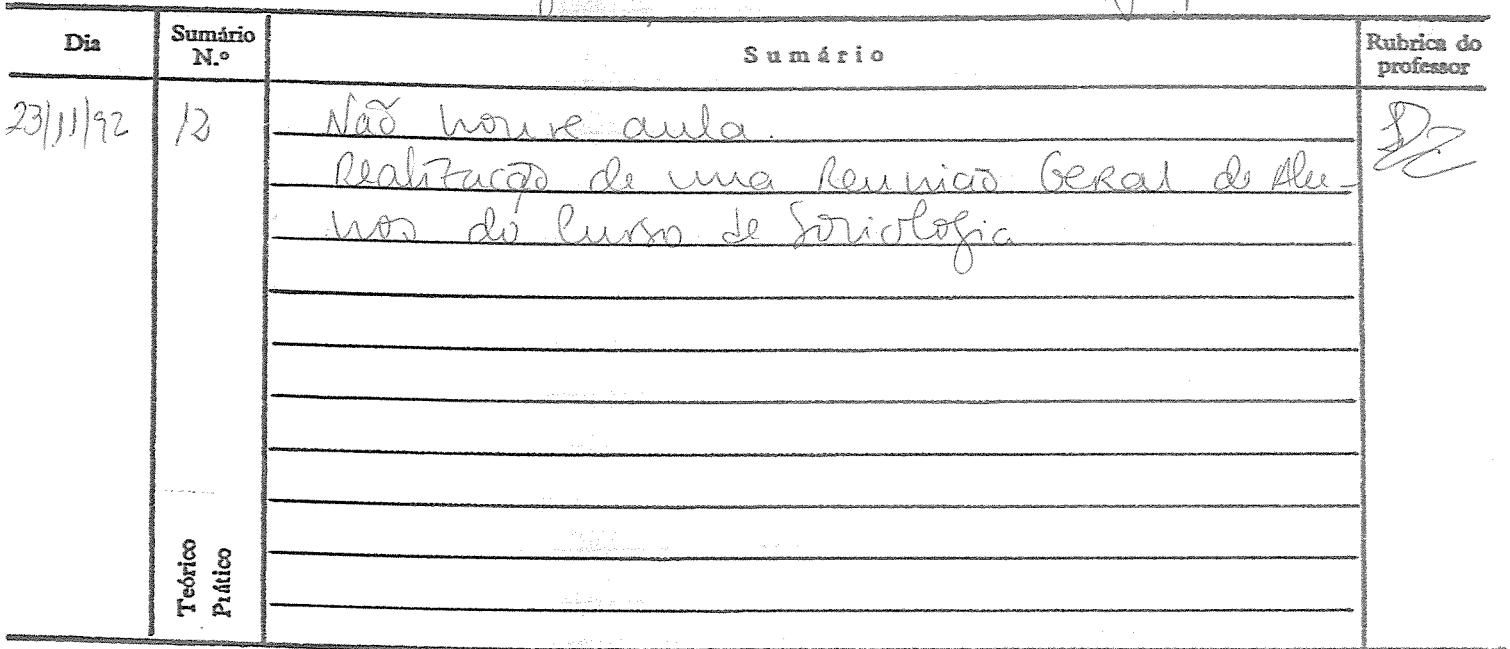 Dia Sumário N.º Sumário Rubrica do professor
23/11/92 12 Não houve aula.
Realização de uma Reunião Geral de Alu-
nos do Curso de Sociologia
Teórico
Prático